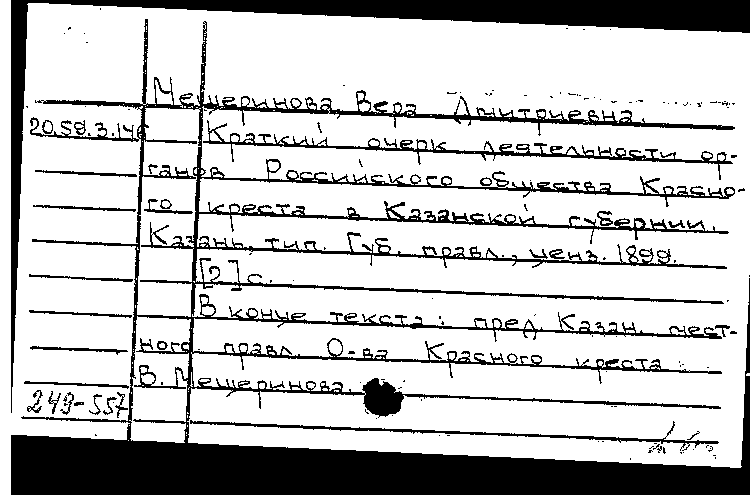 Мещеринова, Вера Дмитриевна.
20.59.3.146 Краткий очерк деятельности ор-
ганов Российского общества Красно-
го креста в Казанской губернии.
Казань, тип. Губ. правл., ценз. 1899.
[2] с.
В конце текста: пред. Казан. мест-
ного правл. О-ва Красного креста
В. Мещеринова.
249-557